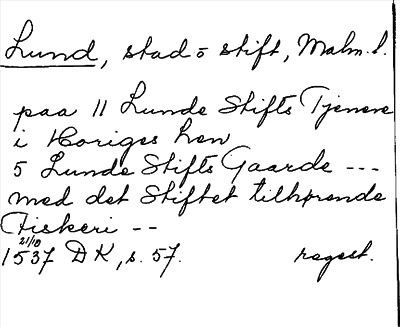 Lund, stad o stift, Malm. l.
paa 11 Lunde Stifts Tjenere
i Horiges hen
5 Lunde Stifts Gaarde ---
med det Stiftet tilhørende
Fiskeri --
21/10
1537 DK, s. 57. regest.